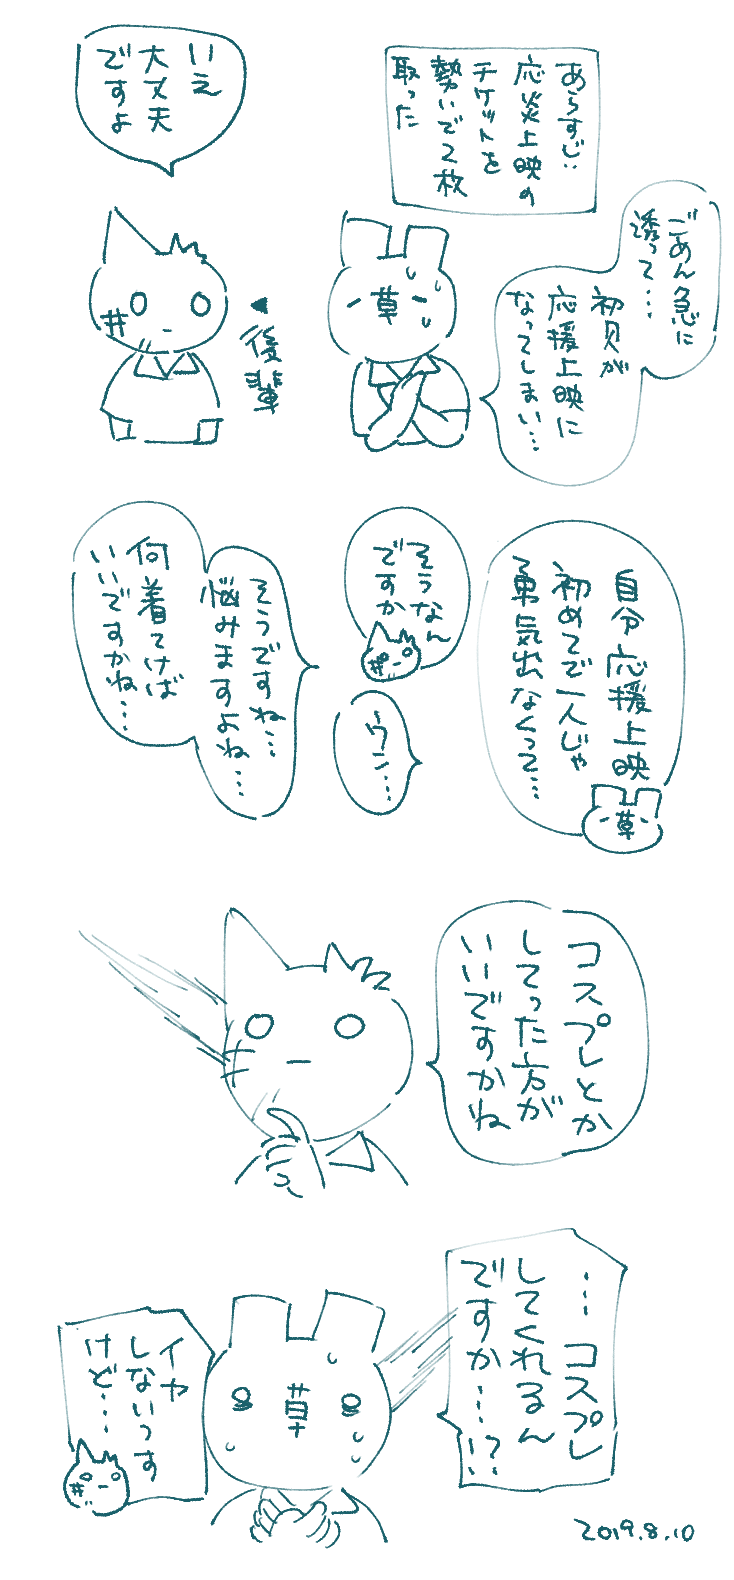 あらすじ:
応炎上映の
チケットを
勢いで2枚
取った
ごめん急に
誘って…
初見が
応援上映に
なってしまい…
草
いえ
大丈夫
ですよ
◀後輩
井
自分応援上映
初めてで一人じゃ
勇気出なくって…
草
そうなん
ですか
井
ウン…
そうですね…
悩みますよね…
何着てけば
いいですかね…
コスプレとか
してった方が
いいですかね
…コスプレ
してくれるん
ですか…!?
草
イヤ
しないっす
けど…
井
2019.8.10